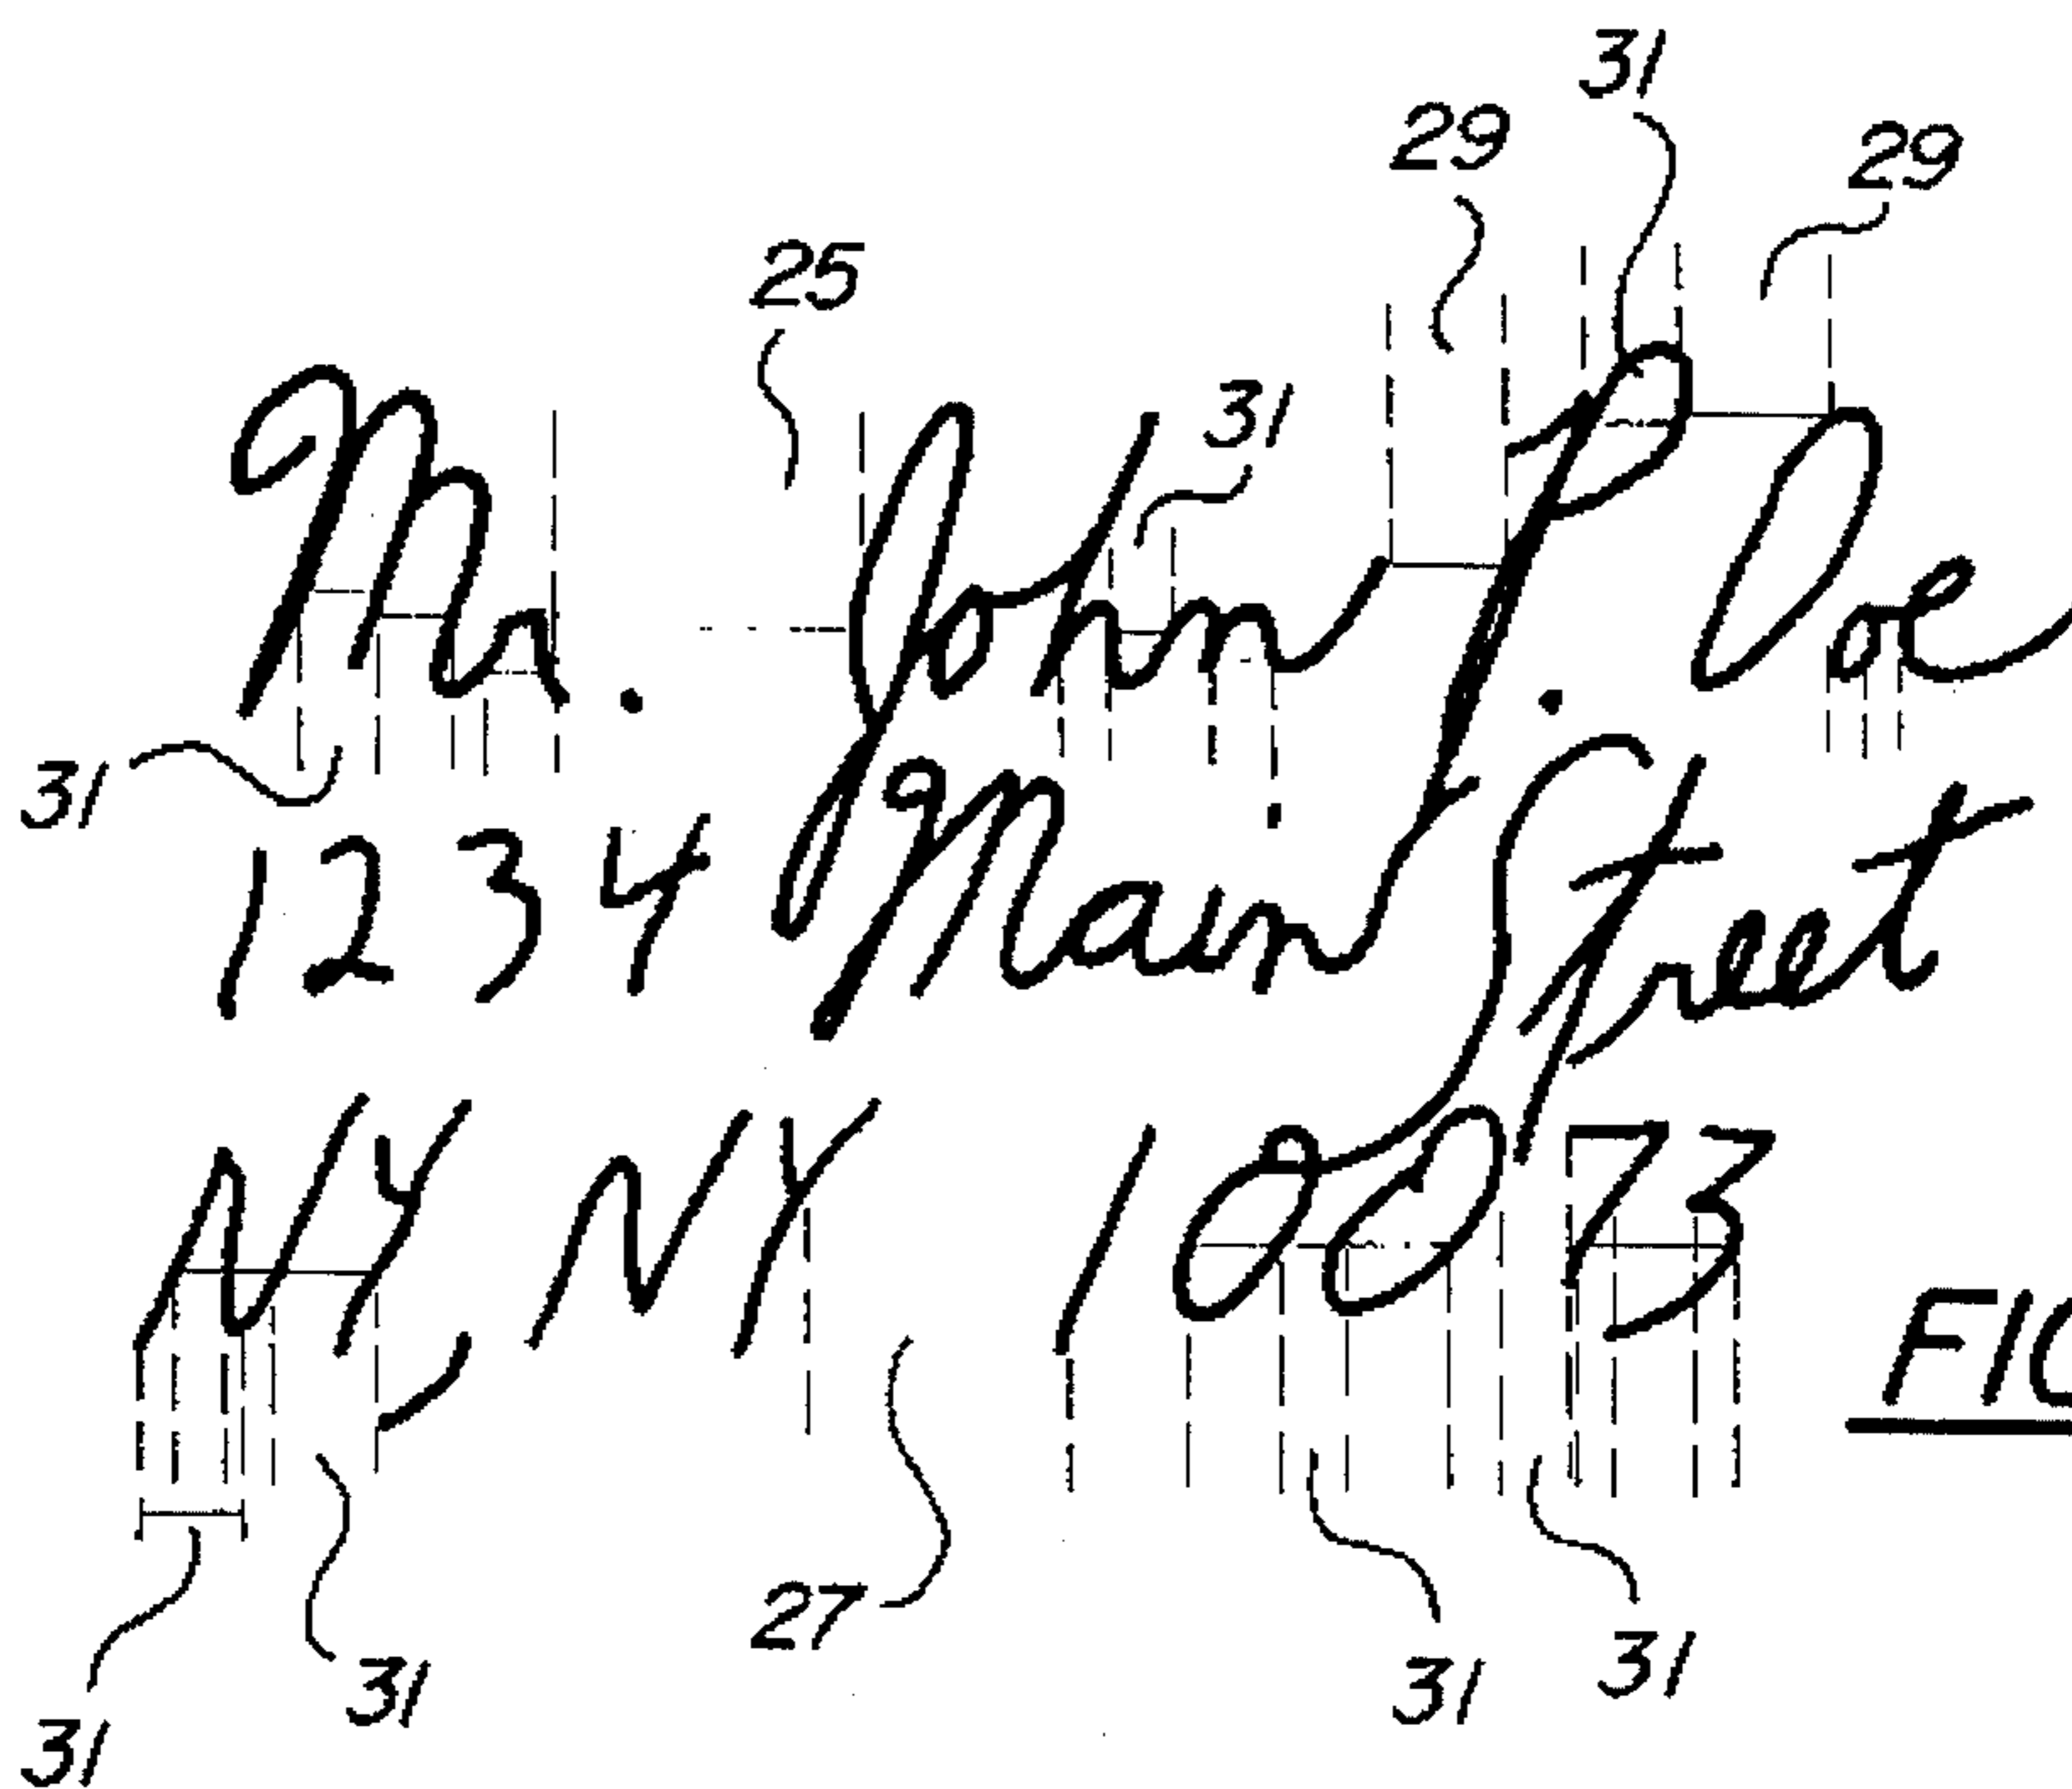 31
29
29
25
31
Mr. John P. Doe
31
1234 Main Street
NY, NY 10073
FIG
27
31
31
31
31